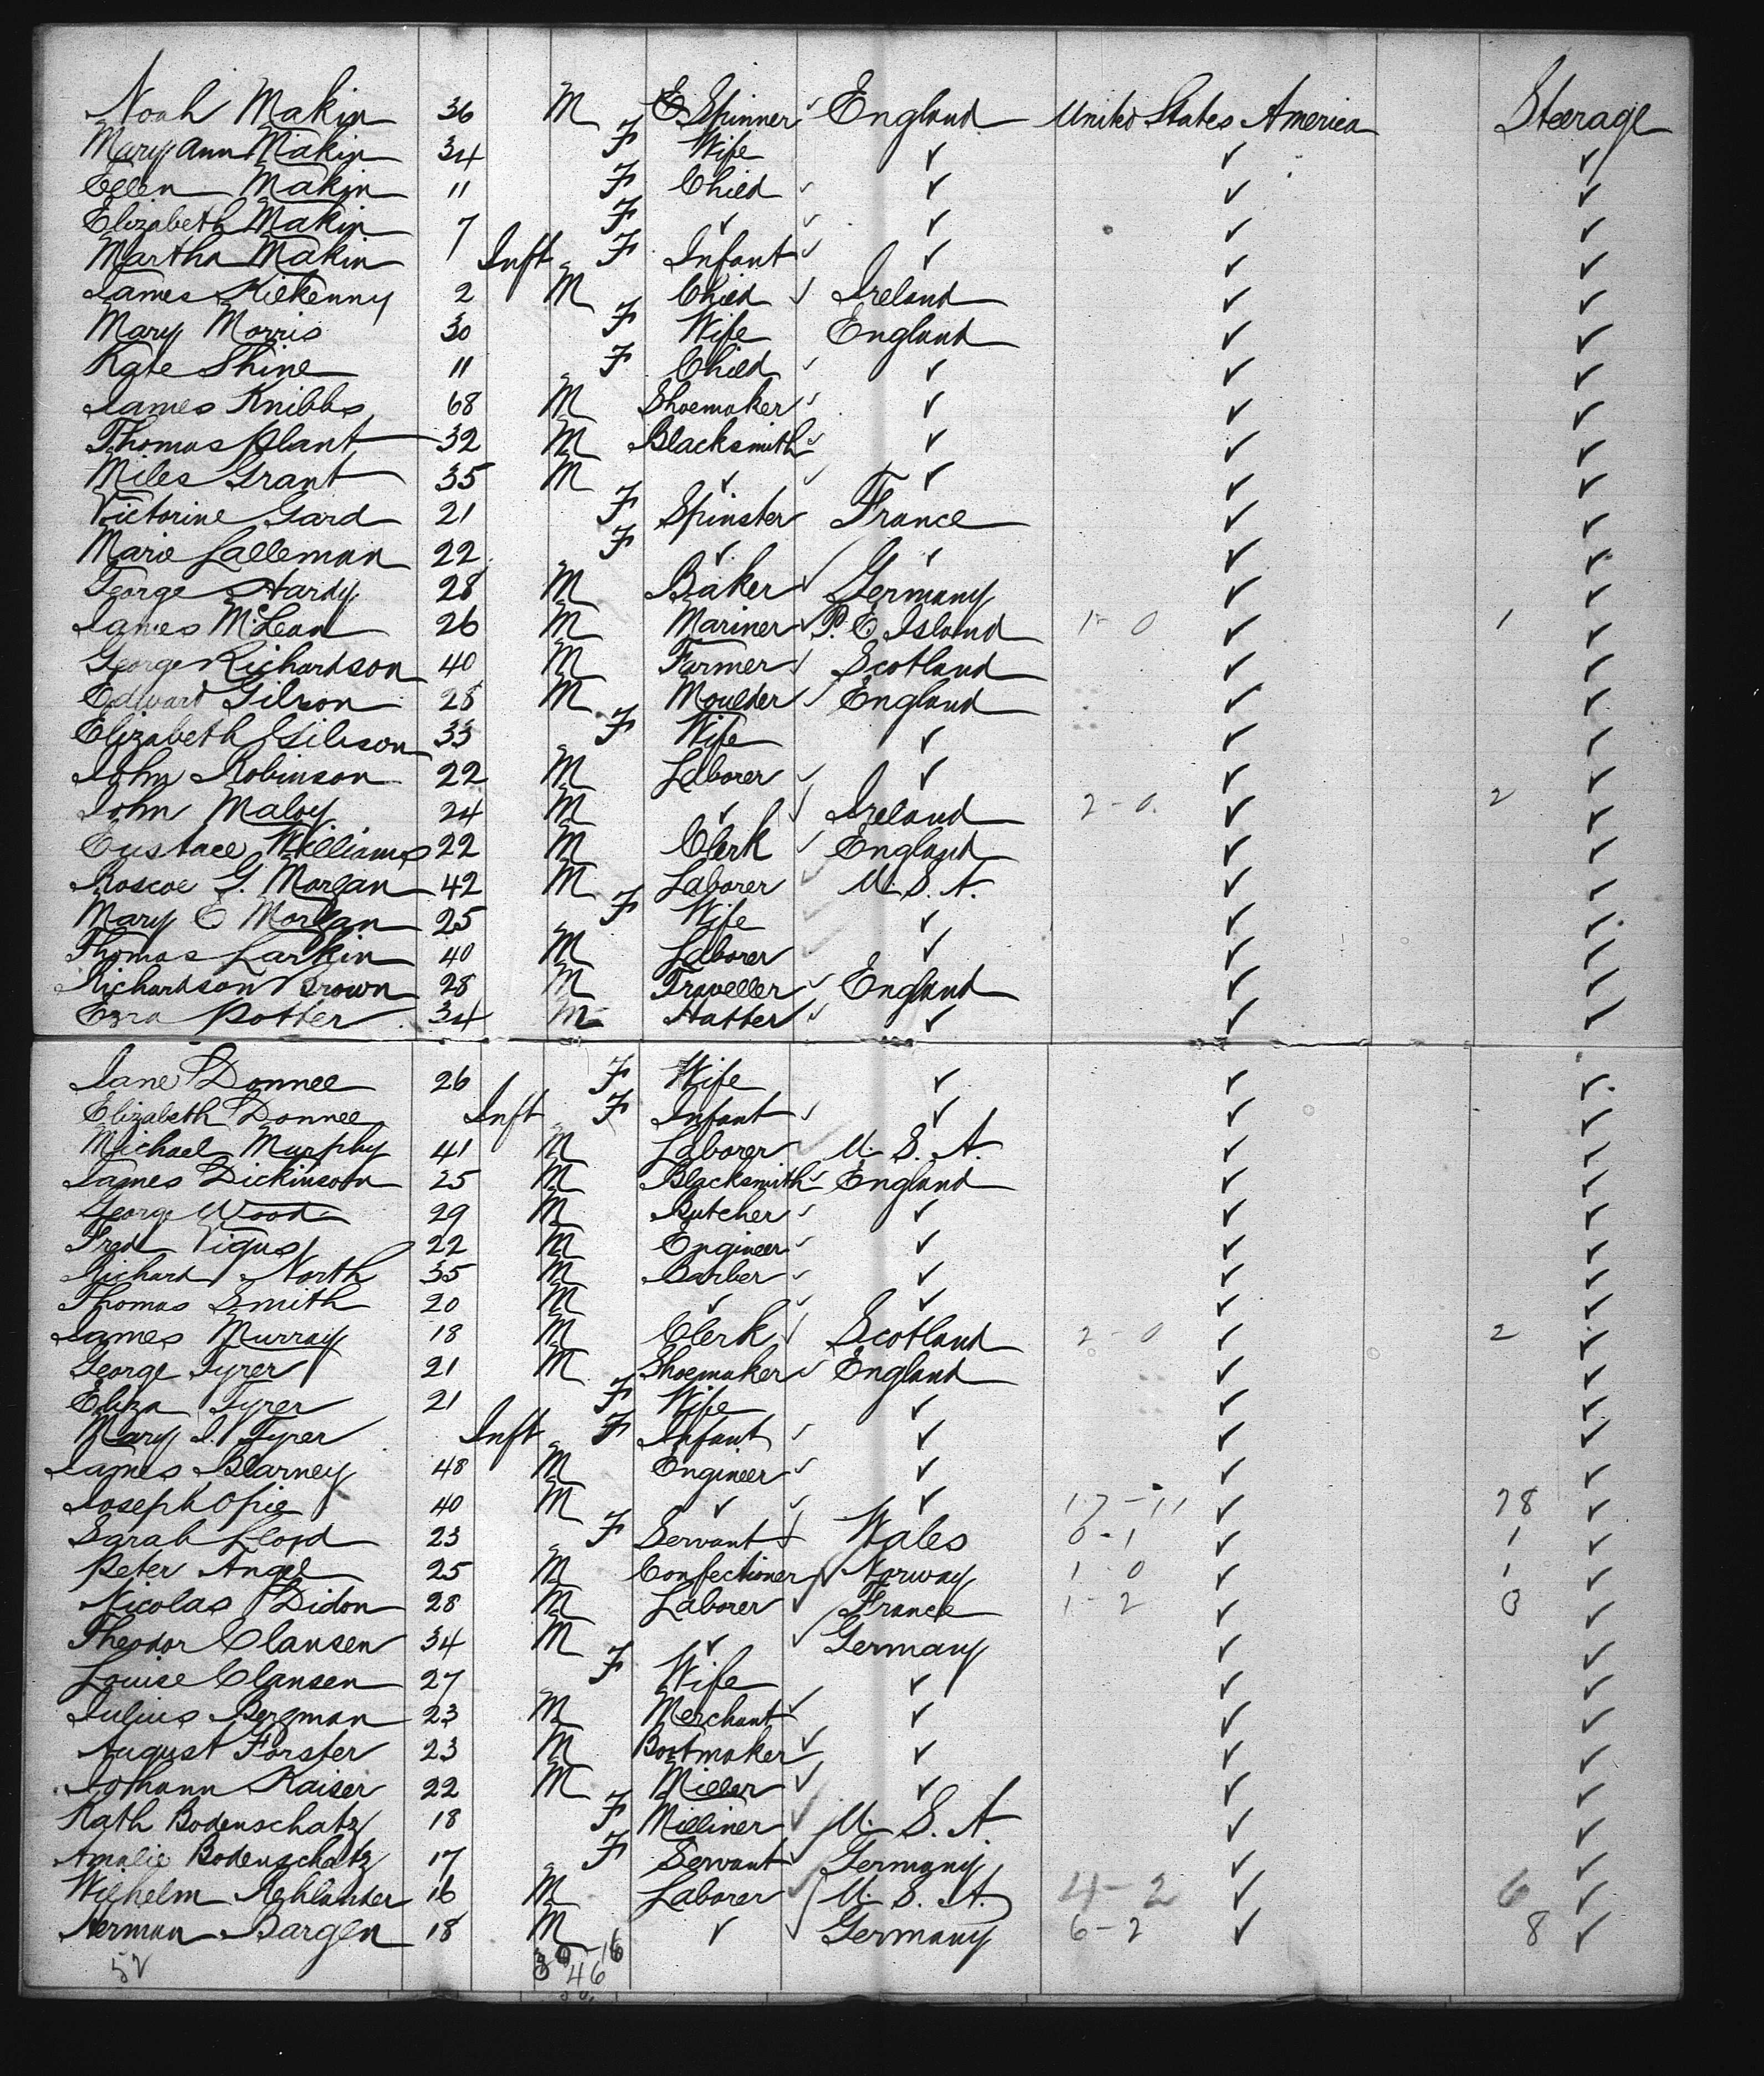 Noah Makin 36 M C Spinner ✓ England United States America Steerage
Mary Ann Makin 34 F Wife ✓ ✓ ✓
Ellen Makin 11 F Child ✓ ✓ ✓ ✓
Elizabeth Makin 7 F ✓ ✓ ✓ ✓ ✓
Martha Makin Inft F Infant ✓ ✓ ✓ ✓
James Kilkenny 2 M Child ✓ Ireland ✓ ✓
Mary Morris 30 F Wife England ✓ ✓
Kate Shine 11 F Child ✓ ✓ ✓ ✓
James Knibbs 68 M Shoemaker ✓ ✓ ✓ ✓
Thomas Plant 32 M Blacksmith ✓ ✓ ✓ ✓
Miles Grant 35 M ✓ ✓ ✓ ✓ ✓
Victorine Gard 21 F Spinster France ✓ ✓
Marie Lalleman 22 F ✓ ✓ ✓ ✓ ✓
George Hardy 28 M Baker ✓ Germany ✓ ✓
James McLean 26 M Mariner ✓ P. E Island 1-0 ✓ 1 ✓
George Richardson 40 M Farmer ✓ Scotland ✓ ✓
Edward Gilson 28 M Moulder ✓ England ✓ ✓
Elizabeth Gilson 33 F Wife ✓ ✓ ✓
John Robinson 22 M Laborer ✓ ✓ ✓ ✓
John Maloy 24 M ✓ ✓ Ireland 2-0 ✓ 2 ✓
Eustace Williams 22 M Clerk ✓ England ✓ ✓
Roscoe G. Morgan 42 M Laborer ✓ U. S. A. ✓ ✓
Mary E Morgan 25 F Wife ✓ ✓ ✓ ✓
Thomas Larkin 40 M Laborer ✓ ✓ ✓ ✓
Richardson Brown 28 M Traveller ✓ England ✓ ✓
Ezra Potter 34 M Hatter ✓ ✓ ✓ ✓
Jane Donnee 26 F Wife ✓ ✓ ✓
Elizabeth Donnee Inft F Infant ✓ ✓ ✓ ✓
Michael Murphy 41 M Laborer ✓ U. S. A. ✓ ✓
James Dickinson 25 M Blacksmith ✓ England ✓ ✓
George Wood 29 M Butcher ✓ ✓ ✓ ✓
Fred Vigus 22 M Engineer ✓ ✓ ✓ ✓
Richard North 35 M Barber ✓ ✓ ✓ ✓
Thomas Smith 20 M ✓ ✓ ✓ ✓ ✓
James Murray 18 M Clerk ✓ Scotland 2-0 ✓ 2 ✓
George Tyrer 21 M Shoemaker ✓ England ✓ ✓
Eliza Tyrer 21 F Wife ✓ ✓ ✓
Mary I. Tyrer Inft F Infant ✓ ✓ ✓ ✓
James Blarney 48 M Engineer ✓ ✓ ✓ ✓
Joseph Opie 40 M ✓ ✓ ✓ 17-11 ✓ 28 ✓
Sarah Lloyd 23 F Servant ✓ Wales 0-1 ✓ 1 ✓
Peter Angel 25 M Confectioner ✓ Norway 1 0 ✓ 1 ✓
Nicolas Didon 28 M Laborer ✓ France 1-2 ✓ 3 ✓
Theodor Clausen 34 M ✓ ✓ Germany ✓ ✓
Louise Clausen 27 F Wife ✓ ✓ ✓
Julius Bergman 23 M Merchant ✓ ✓ ✓ ✓
August Forster 23 M Bootmaker ✓ ✓ ✓ ✓
Johann Kaiser 22 M Miller ✓ ✓ ✓ ✓
Kath Bodenschatz 18 F Milliner ✓ U. S. A. ✓ ✓
Amalie Bodenschatz 17 F Servant ✓ Germany ✓ ✓
Wilhelm Aehlander 16 M Laborer ✓ U. S. A. 4-2 ✓ 6 ✓
Herman Bargen 18 M ✓ ✓ Germany 6-2 ✓ 8 ✓
52 30 16
46